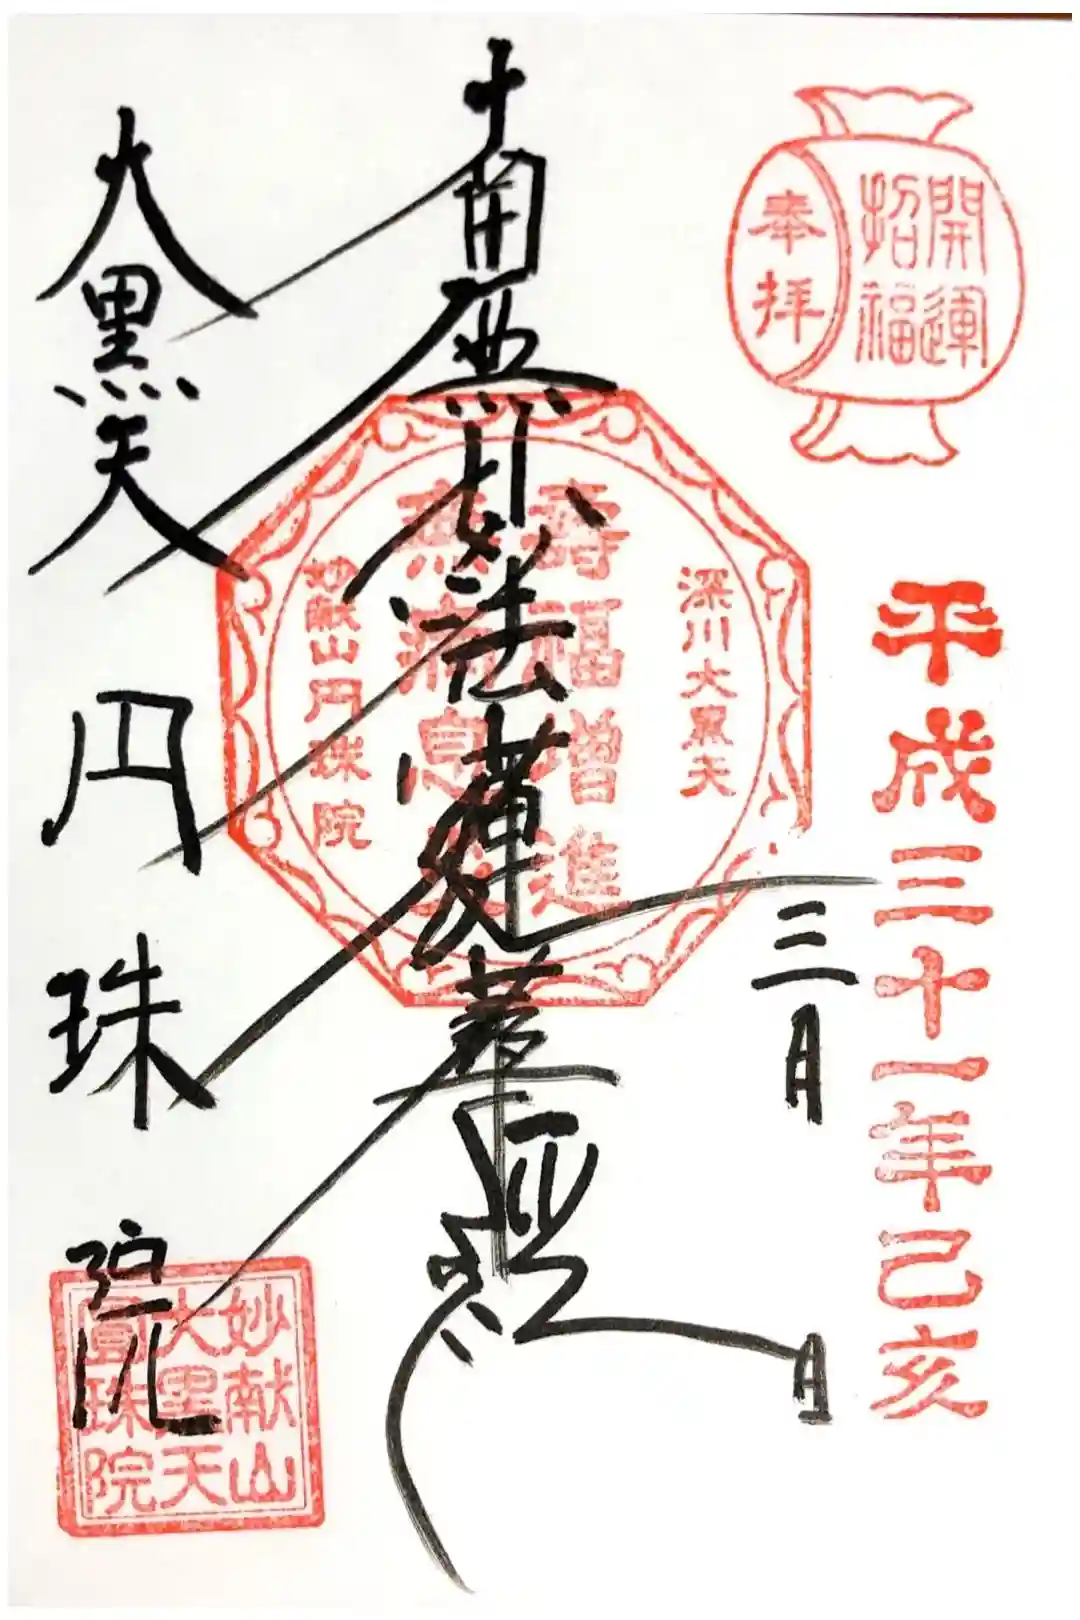 開運
招福
奉拝
平成三十一年己亥
三月 日
深川大黒天
壽福増進
無病息災
妙献山円珠院
南無妙法蓮華経
大黒天
円珠院
妙献山
大黒天
圓珠院